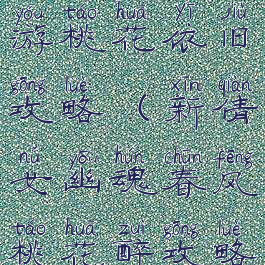 yóu táo huā yī jiù
游桃花依旧
gōng lüè xīn qiàn
攻略(新倩
nǚ yōu hún chūn fēng
女幽魂春风
táo huā zuì gōng lüè
桃花醉攻略